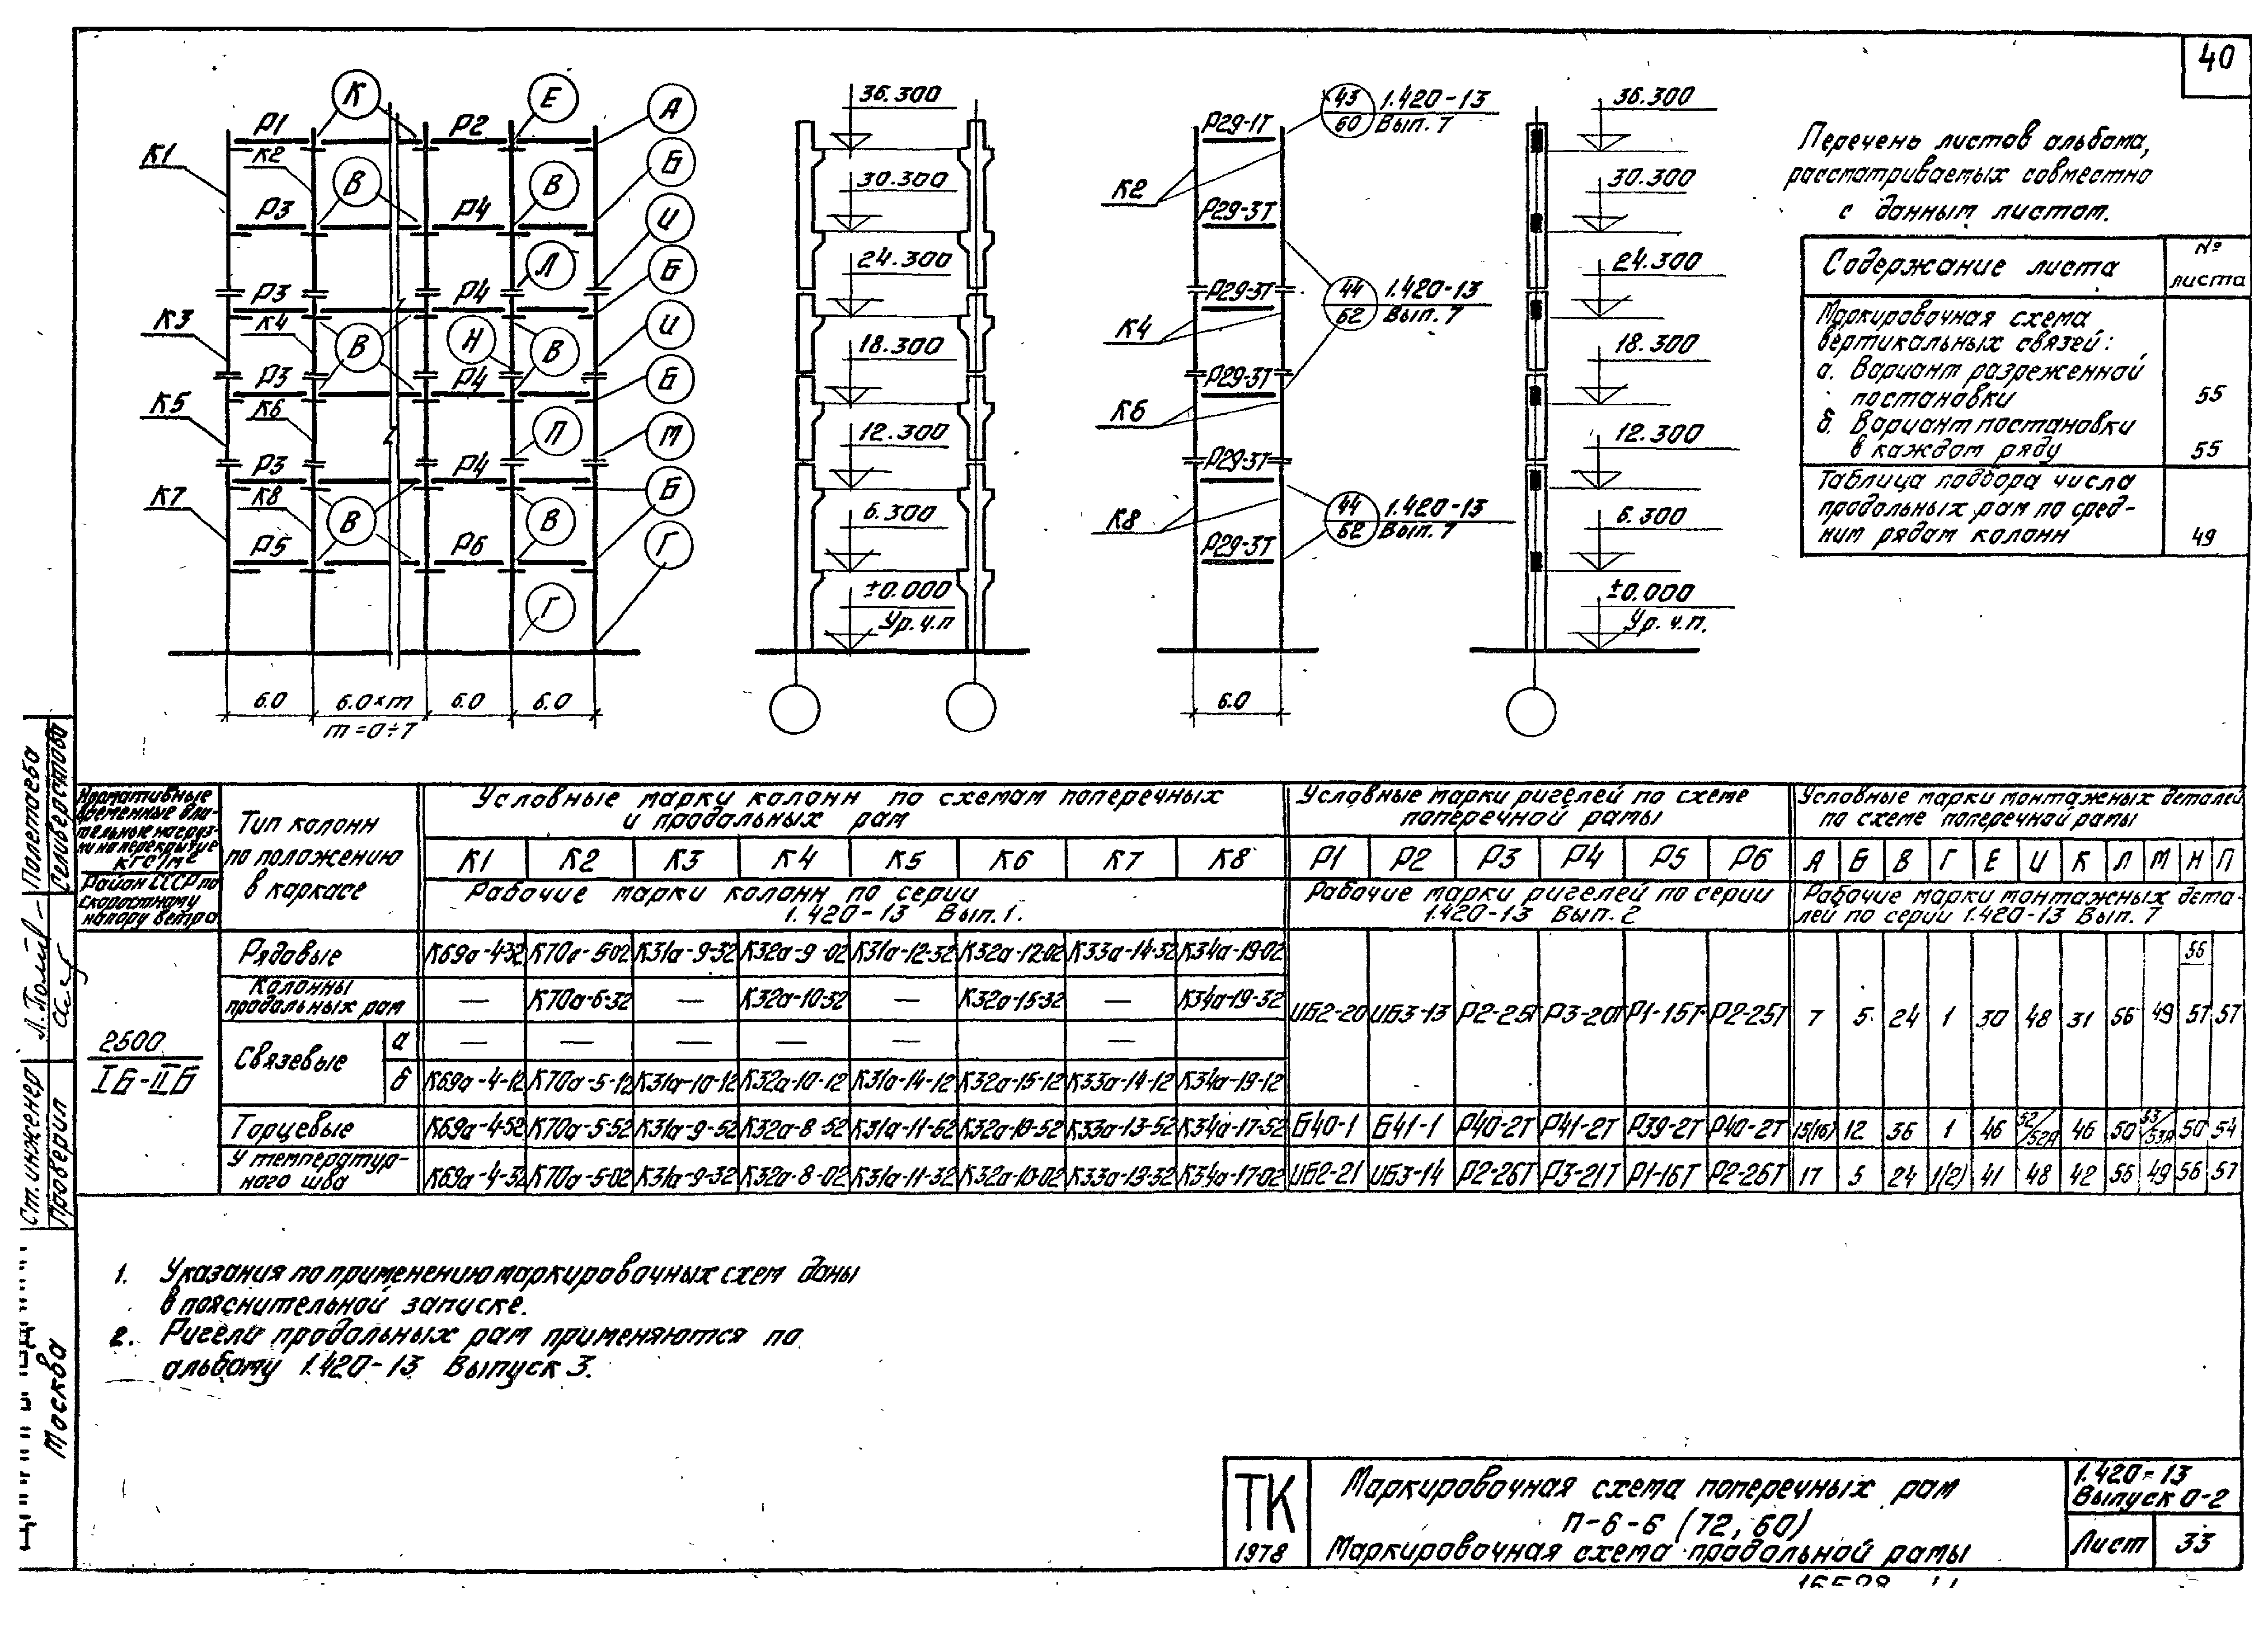 40
К
Е
А
Р1
Р2
К1
К2
Б
В
В
Р3
Р4
И
Л
Б
Р3
Р4
К3
К4
И
В
Н
В
Р3
Р4
Б
К5
К6
П
М
Р3
Р4
Б
К7
К8
В
В
Г
Р5
Р6
Г
6.0
6.0×m
6.0
6.0
m=0÷7
36.300
30.300
24.300
18.300
12.300
6.300
±0.000
Ур.ч.п
Р29-1Т
43
60
1.420-13
Вып. 7
К2
Р29-3Т
Р29-3Т
44
62
1.420-13
Вып. 7
К4
Р29-3Т
К6
Р29-3Т
44
62
1.420-13
Вып. 7
К8
Р29-3Т
6.0
36.300
30.300
24.300
18.300
12.300
6.300
±0.000
Ур.ч.п.
Перечень листов альбома,
рассматриваемых совместно
с данным листом.
Содержание листа
№
листа
Маркировочная схема
вертикальных связей:
а. Вариант разреженной
постановки
55
б. Вариант постановки
в каждом ряду
55
Таблица подбора числа
продольных рам по сред-
ним рядам колонн
49
Нормативные
временные дли-
тельные нагруз-
ки на перекрытие
кгс/м²
Район СССР по
скоростному
напору ветра
Тип колонн
по положению
в каркасе
Условные марки колонн по схемам поперечных
и продольных рам
Условные марки ригелей по схеме
поперечной рамы
Условные марки монтажных деталей
по схеме поперечной рамы
К1 К2 К3 К4 К5 К6 К7 К8 Р1 Р2 Р3 Р4 Р5 Р6 А Б В Г Е И К Л М Н П
Рабочие марки колонн по серии
1.420-13 Вып. 1.
Рабочие марки ригелей по серии
1.420-13 Вып. 2
Рабочие марки монтажных дета-
лей по серии 1.420-13 Вып. 7
2500
IБ-IIБ
Рядовые К69а-4-32 К70а-5-02 К31а-9-32 К32а-9-02 К31а-12-32 К32а-12-02 К33а-14-32 К34а-19-02
Колонны
продольных рам — К70а-6-32 — К32а-10-32 — К32а-15-32 — К34а-19-32
ИБ2-20 ИБ3-13 Р2-25Т Р3-20Т Р1-15Т Р2-25Т 7 5 24 1 30 48 31 56 49 56 57 57
Связевые
а — — — — — —
б К69а-4-12 К70а-5-12 К31а-10-12 К32а-10-12 К31а-14-12 К32а-15-12 К33а-14-12 К34а-19-12
Торцевые К69а-4-52 К70а-5-52 К31а-9-52 К32а-8-52 К31а-11-52 К32а-10-52 К33а-13-52 К34а-17-52 Б40-1 Б41-1 Р40-2Т Р41-2Т Р39-2Т Р40-2Т 15(16) 12 36 1 46 52/52А 46 50 53/53А 50 54
У температур-
ного шва К69а-4-32 К70а-5-02 К31а-9-32 К32а-8-02 К31а-11-32 К32а-10-02 К33а-13-32 К34а-17-02 ИБ2-21 ИБ3-14 Р2-26Т Р3-21Т Р1-16Т Р2-26Т 17 5 24 1(2) 41 48 42 56 49 56 57
1. Указания по применению маркировочных схем даны
в пояснительной записке.
2. Ригели продольных рам применяются по
альбому 1.420-13 Выпуск 3.
Полетаева
Селиверстова
Ст. инженер
Проверил
Москва
ТК
1978
Маркировочная схема поперечных рам
П-6-6 (72, 60)
Маркировочная схема продольной рамы
1.420-13
Выпуск 0-2
Лист
33